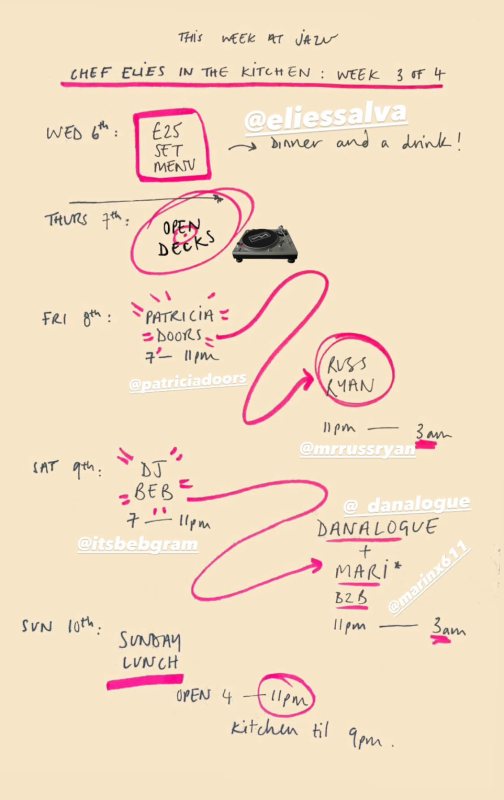 THIS WEEK AT JAZU
CHEF ELIES IN THE KITCHEN : WEEK 3 OF 4
@eliessalva
WED 6th :
£25
SET
MENU
→ Dinner and a drink!
THURS 7th :
OPEN
DECKS
FRI 8th :
PATRICIA
DOORS
7 — 11pm
@patriciadoors
RUSS
RYAN
11pm — 3am
@mrrussryan
SAT 9th :
DJ
BEB
7 — 11pm
@itsbebgram
@_danalogue
DANALOGUE
+
MARI*
B2B
@marinx611
11pm — 3am
SUN 10th :
SUNDAY
LUNCH
OPEN 4 — 11pm
Kitchen til 9pm.